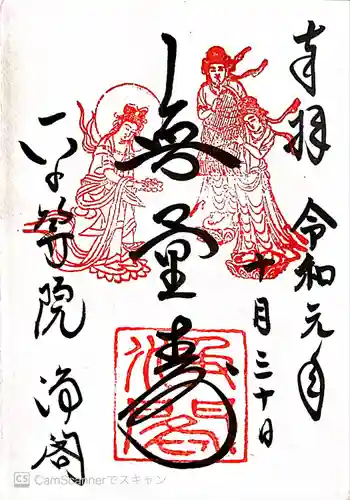 奉拝
令和元年
十月三十日
無量寿
平等院 浄閣
CS CamScannerでスキャン